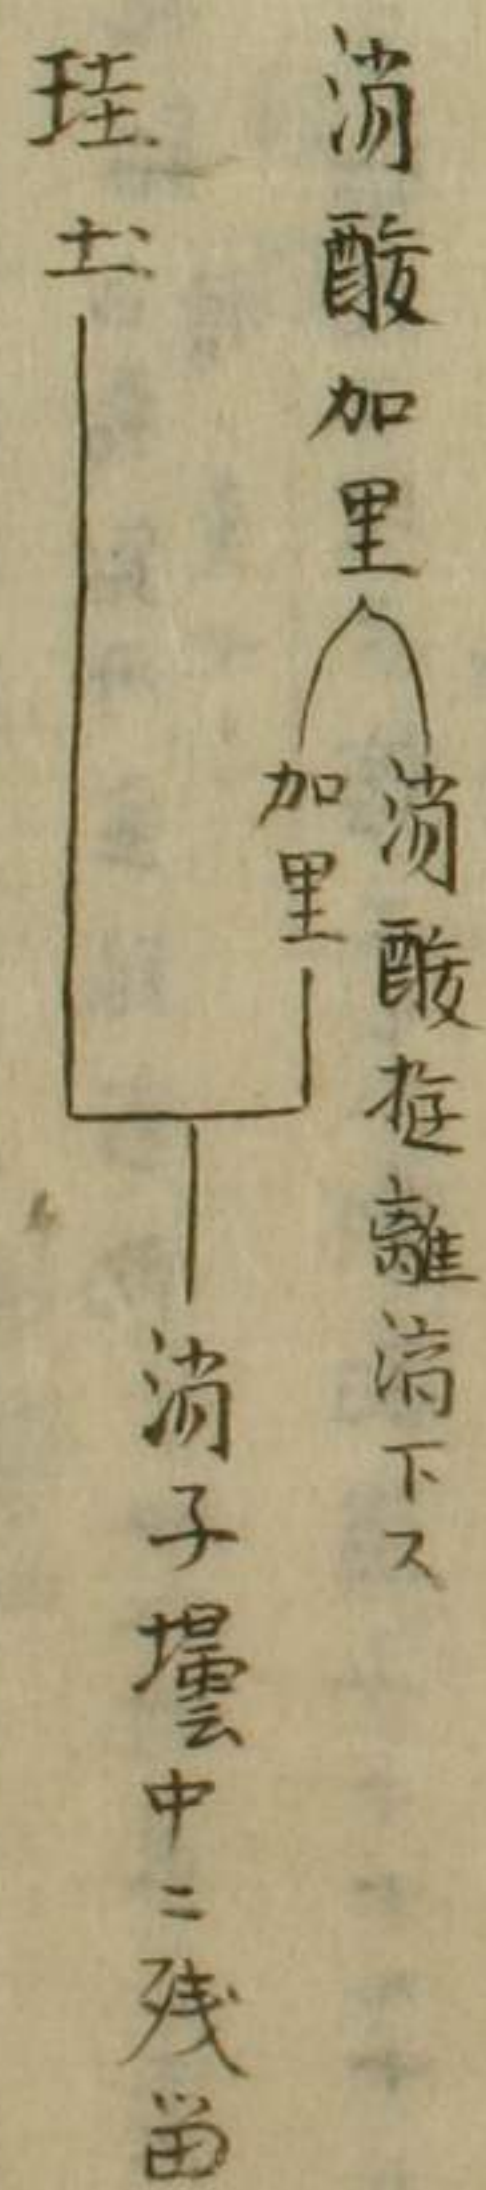 消酸加里
消酸挺離滴下ス
加里
珪土
消子壜中ニ残留